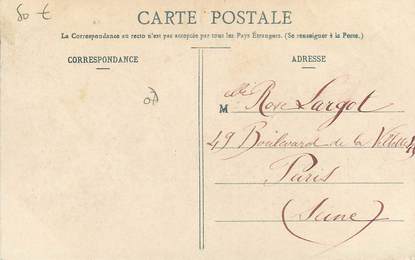 80 €
CARTE POSTALE
La Correspondance au recto n'est pas acceptée par tous les Pays Étrangers. (Se renseigner à la Poste.)
CORRESPONDANCE
ADRESSE
07
Mlle Rose Largot
49 Boulevard de la Villette 49
Paris
(Seine)